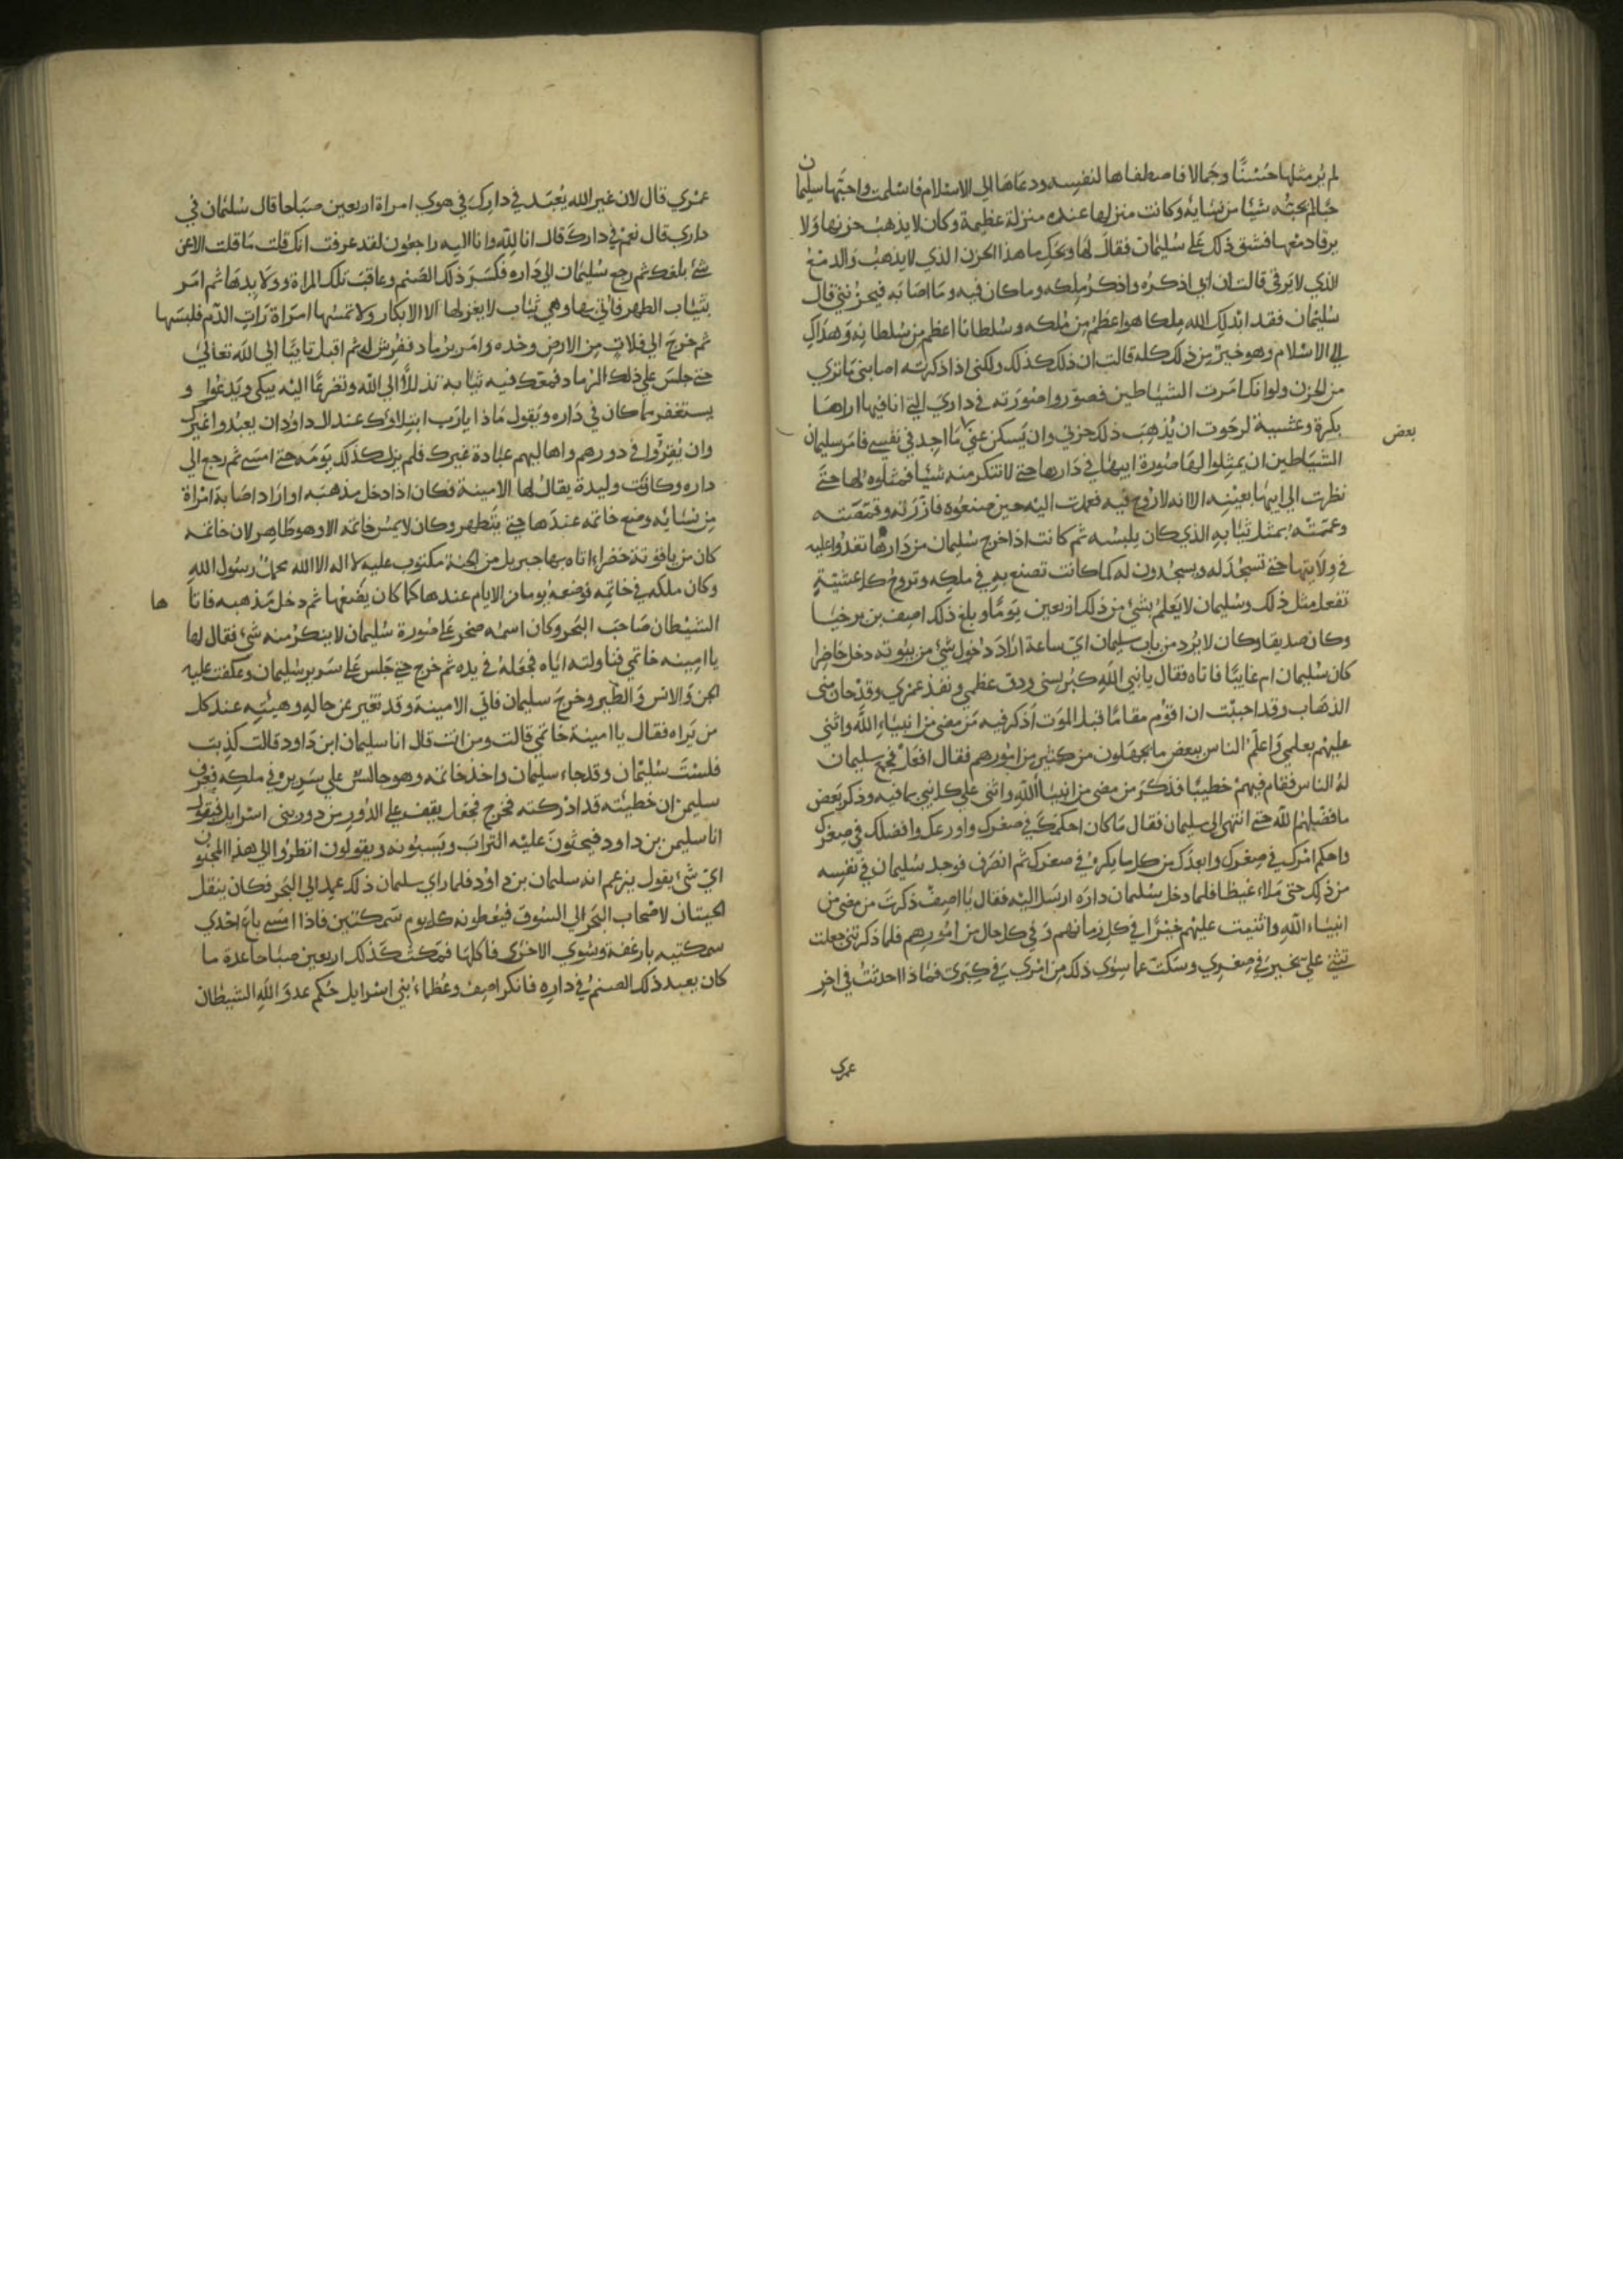 لم ير مثلها حسنا وجمالا فاصطفاها لنفسه ودعاها الى الاسلام فاسلمت واحبها سليمان
حبا لم يحبه شيئا من نسايه وكانت منزلها عنده منزلة عظيمة وكان لا يذهب حزنها ولا
يرقا دمعها فشق ذلك على سليمان فقال لها ويحك ما هذا الحزن الذي لا يذهب والدمع
الذي لا يرقى قالت ان ابي اذكره واذكر ملكه وما كان فيه وما اصابه فيحزنني قال
سليمان فقد ابدلك الله ملكا هو اعظم من ملكه وسلطانا اعظم من سلطانه وهداك
الى الاسلام وهو خير من ذلك كله قالت ان ذلك كذلك ولكني اذا ذكرته اصابني ما تري
من الحزن ولو انك امرت الشياطين فصوروا صورته في داري التي انا فيها اراها
بكرة وعشية لرجوت ان يذهب ذلك حزني وان يسكن عني ما اجد في نفسي فامر سليمان
بعض
الشياطين ان يمثلوا لها صورة ابيها في دارها حتي لا تنكر منه شيئا فمثلوه لها حتى
نظرت الى ابيها بعينه الا انه لا روح فيه فعمدت اليه حين صنعوه فازرته وقمصته
وعممته بمثل ثيابه الذي كان يلبسه ثم كانت اذا خرج سليمان من دارها تغدوا عليه
في ولايتها حتي تسجد له ويسجدون له كما كانت تصنع به في ملكه وتروح كل عشية
تفعل مثل ذلك وسليمان لا يعلم بشي من ذلك اربعين يوما وبلغ ذلك اصيف بن برخيا
وكان صديقا وكان لا يرد من باب سليمان اي ساعة اراد دخول شي من بيوته دخل حاضرا
كان سليمان ام غايبا فاتاه فقال يا نبي الله كبر سني ودق عظمي ونفذ عمري وقد حان مني
الذهاب وقد احببت ان اقوم مقاما قبل الموت اذكر فيه من مضى من انبياء الله واثني
عليهم بعلمي واعلم الناس ببعض ما يجهلون من كثير من امورهم فقال افعل فجمع سليمان
له الناس فقام فيهم خطيبا فذكر من مضى من انبياء الله واثنى على كل نبي بما فيه وذكر بعض
ما فضلهم الله حتي انتهى الى سليمان فقال ما كان احكمك في صغرك واورعك وافضلك في صغرك
واحكم امرك في صغرك وابعدك من كل ما يكره في صغرك ثم انصرف فوجد سليمان في نفسه
من ذلك حتى ملاه غيظا فلما دخل سليمان داره ارسل اليه فقال يا اصيف ذكرت من مضى من
انبياء الله واثنيت عليهم خيرا في كل زمانهم وفي كل حال من امورهم فلما ذكرتني جعلت
تثني علي بخير في صغري وسكت عما سوى ذلك من امري في كبري فماذا احدثت في اخر
عمري
عمري قال لان غير الله يعبد في دارك في هوى امراة اربعين صباحا قال سليمان في
داري قال نعم في دارك قال انا لله وانا اليه راجعون لقد عرفت انك ما قلت الا عن
شي بلغك ثم رجع سليمان الى داره فكسر ذلك الصنم وعاقب تلك المراة وولايدها ثم امر
بثياب الطهر فاتي بها وهي ثياب لا يغزلها الا الابكار ولا تمسها امراة رات الدم فلبسها
ثم خرج الي فلاة من الارض وحده وامر برماد ففرش له ثم اقبل تايبا الى الله تعالى
حتي جلس علي ذلك الرماد فمعك فيه ثيابه تذللا الي الله وتضرعا اليه يبكي ويدعوا و
يستغفر مما كان في داره ويقول ماذا يارب ابتلاؤك عند ال داود ان يعبدوا غيرك
وان يقروا في دورهم واهاليهم عبادة غيرك فلم يزل كذلك يومه حتى امسى ثم رجع الى
داره وكانت وليدة يقال لها الامينة فكان اذا دخل مذهبه او اراد اصابة امراة
من نسايه وضع خاتمه عندها حتي يتطهر وكان لا يمس خاتمه الا وهو طاهر لان خاتمه
كان من ياقوتة خضراء اتاه بها جبريل من الجنة مكتوب عليه لا اله الا الله محمد رسول الله
وكان ملكه في خاتمه فوضعه يوما من الايام عندها كما كان يضعها ثم دخل مذهبه فاتاها
الشيطان صاحب البحر وكان اسمه صخر على صورة سليمان لا ينكر منه شي فقال لها
يا امينه خاتمي فناولته اياه فجعله في يده ثم خرج حتي جلس على سرير سليمان وعكفت عليه
الجن والانس والطير وخرج سليمان فاتي الامينة وقد تغير عن حاله وهيئته عند كل
من يراه فقال يا امينة خاتمي قالت ومن انت قال انا سليمان ابن داود قالت كذبت
فلست سليمان وقد جاء سليمان واخذ خاتمه وهو جالس علي سريره في ملكه فعرف
سليمن ان خطيئته قد ادركته فخرج فجعل يقف علي الدور من دور بني اسرايل فيقول
انا سليمن بن داود فيحثون عليه التراب ويسبونه ويقولون انظروا الي هذا المجنون
اي شي يقول يزعم انه سليمان بن داود فلما راي سليمان ذلك عمد الى البحر فكان ينقل
الحيتان لاصحاب البحر الي السوق فيعطونه كل يوم سمكتين فاذا امسى باع احدي
سمكتيه بارغفة وشوي الاخري فاكلها فمكث كذلك اربعين صباحا عدة ما
كان يعبد ذلك الصنم في داره فانكر اصيف وعظماء بني اسرايل حكم عدو الله الشيطان